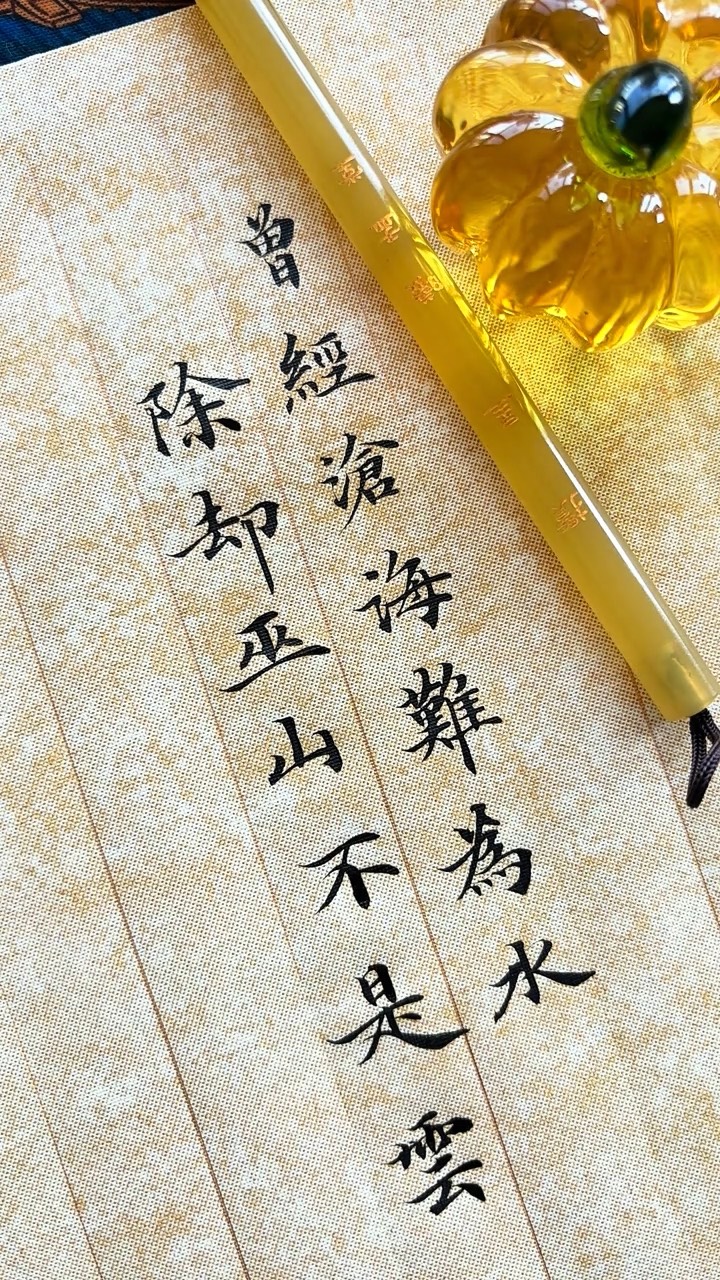 曾經滄海難為水
除却巫山不是雲